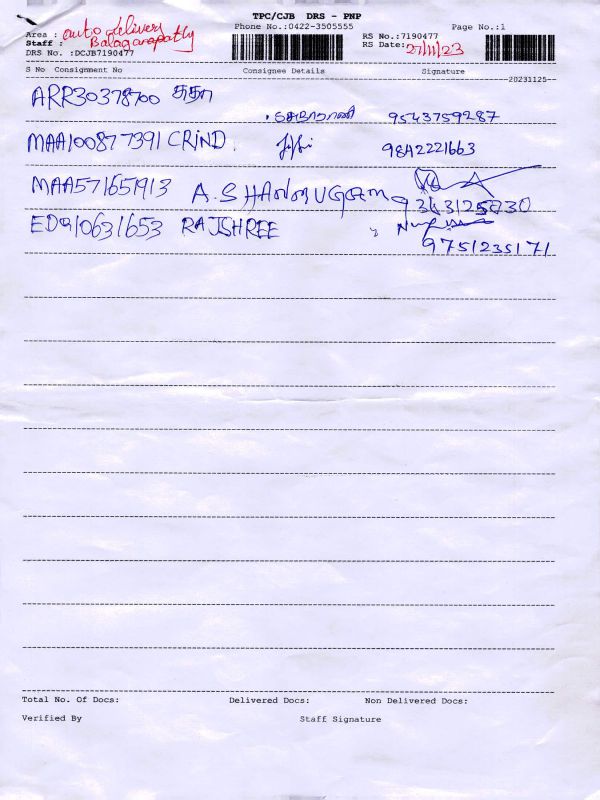 TPC/CJB DRS - PNP
Phone No.:0422-3505555 Page No.:1
Area : auto delivery
Staff : Balaganapatly
RS No.:7190477
RS Date: 27/11/23
DRS No. :DCJB7190477
S No Consignment No Consignee Details Signature
20231125
ARR30378700 சுதா
9543759287
MAA100877391 CRIND.
9842221663
MAA571651913 A.SHANMUGAM
9363125830
ED910631653 RAJSHREE
9751235171
Total No. Of Docs: Delivered Docs: Non Delivered Docs:
Verified By Staff Signature